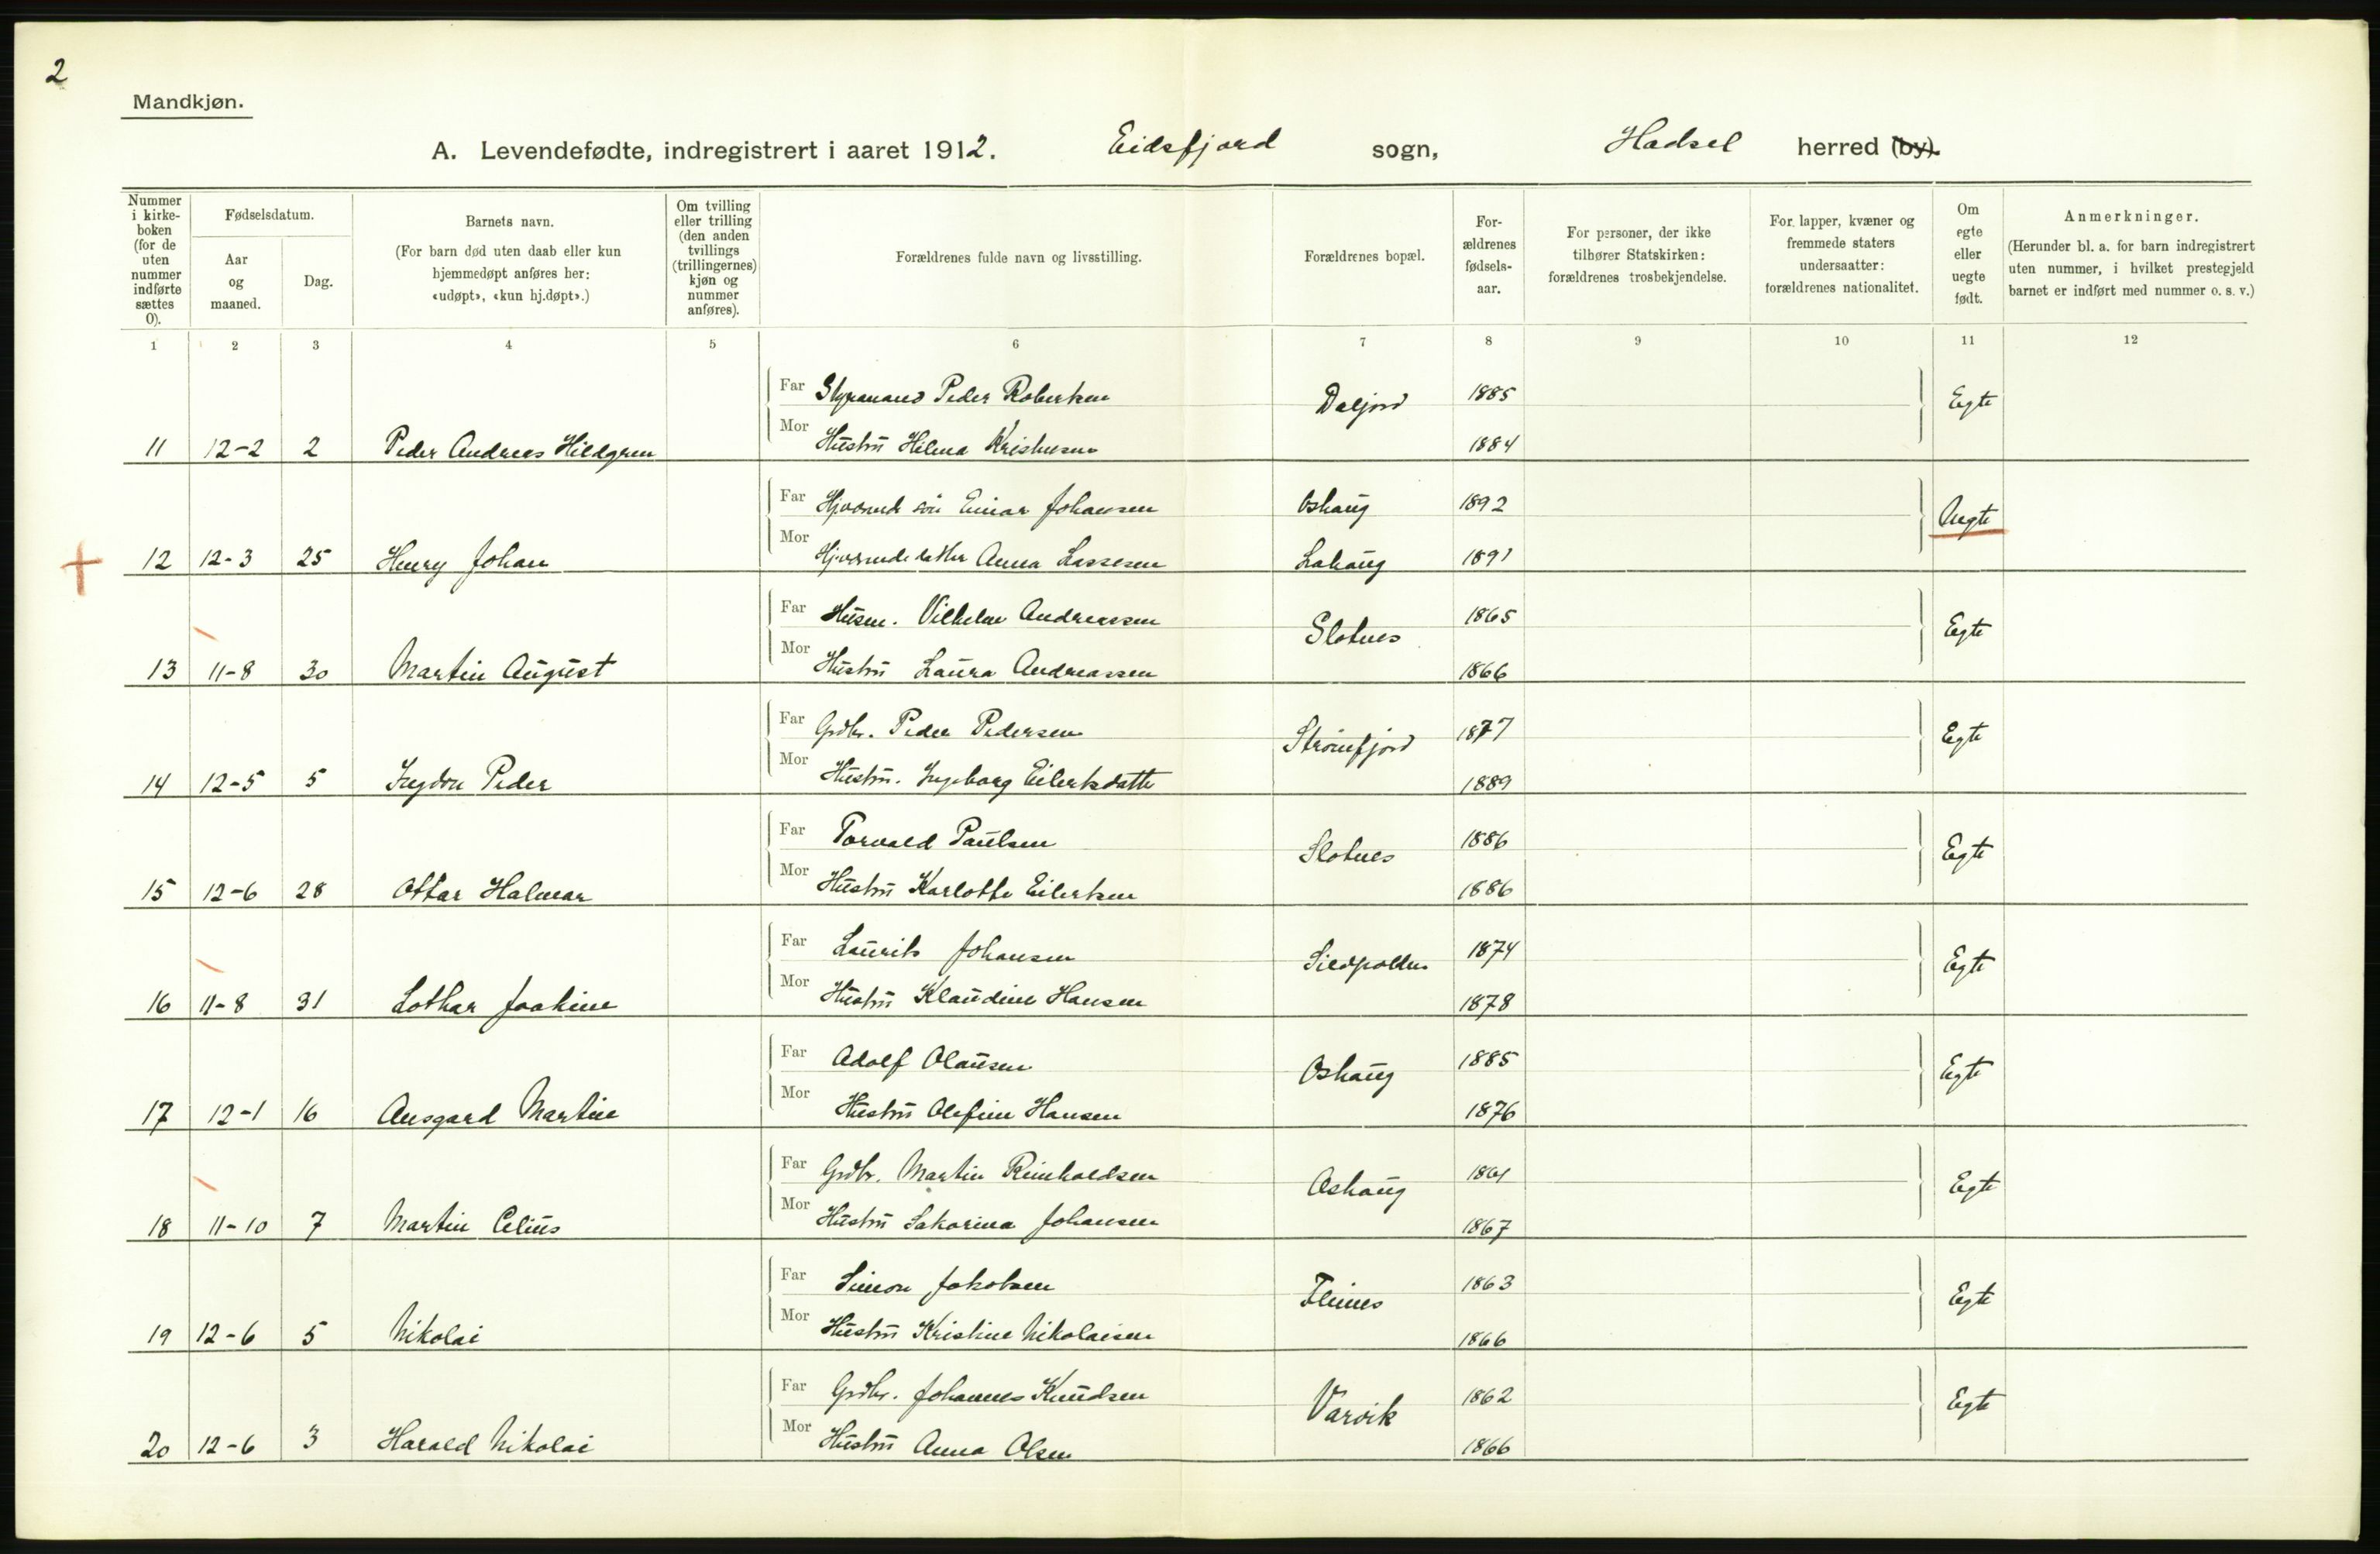 2
Mandkjøn.
A. Levendefødte, indregistrert i aaret 1912. Eidsfjord sogn, Hadsel herred (by).
Nummer i kirke- boken (for de uten nummer indførte sættes 0).
Fødselsdatum.
Aar og maaned.
Dag.
Barnets navn.
(For barn død uten daab eller kun hjemmedøpt anføres her: «udøpt», «kun hj.døpt».)
Om tvilling eller trilling (den anden tvillings (trillingernes) kjøn og nummer anføres).
Forældrenes fulde navn og livsstilling.
Forældrenes bopæl.
For- ældrenes fødsels- aar.
For personer, der ikke tilhører Statskirken: forældrenes trosbekjendelse.
For lapper, kvæner og fremmede staters undersaatter: forældrenes nationalitet.
Om egte eller uegte født.
Anmerkninger.
(Herunder bl. a. for barn indregistrert uten nummer, i hvilket prestegjeld barnet er indført med nummer o. s. v.)
1 2 3 4 5 6 7 8 9 10 11 12
Far Peder Robertsen Daljord 1885 Egte
Mor Hustru Hilma Kristensen 1884
11 12-2 2 Peder Andreas Hildgren
Far Einar Johansen Oshaug 1892 Uegte
Mor Anna Lassesen Lahaug 1891
12 12-3 25 Henry Johan
Far Husm. Vilhelm Andreassen Slotnes 1865 Egte
Mor Hustru Laura Andreassen 1866
13 11-8 30 Martin August
Far Grdbr. Peder Pedersen Strømfjord 1877 Egte
Mor Hustru. Ingeborg Eilertsdatter 1889
14 12-5 5 Peder
Far Torvald Paulsen Slotnes 1886 Egte
Mor Hustru Karlotte Eilertsen 1886
15 12-6 28 Ottar Halmar
Far Laurits Johansen Sildpollen 1874 Egte
Mor Hustru Klaudine Hansen 1878
16 11-8 31 Lothar Joakim
Far Adolf Olausen Oshaug 1885 Egte
Mor Hustru Olefine Hansen 1876
17 12-1 16 Ansgard Martin
Far Grdbr. Martin Reinholdsen Oshaug 1861 Egte
Mor Hustru Sakarina Johansen 1867
18 11-10 7 Martin Celius
Far Simon Jakobsen Fleines 1863 Egte
Mor Hustru Kristine Nikolaisen 1866
19 12-6 5 Nikolai
Far Grdbr. Johannes Knudsen Varvik 1862 Egte
Mor Hustru Anna Olsen 1866
20 12-6 3 Harald Nikolai